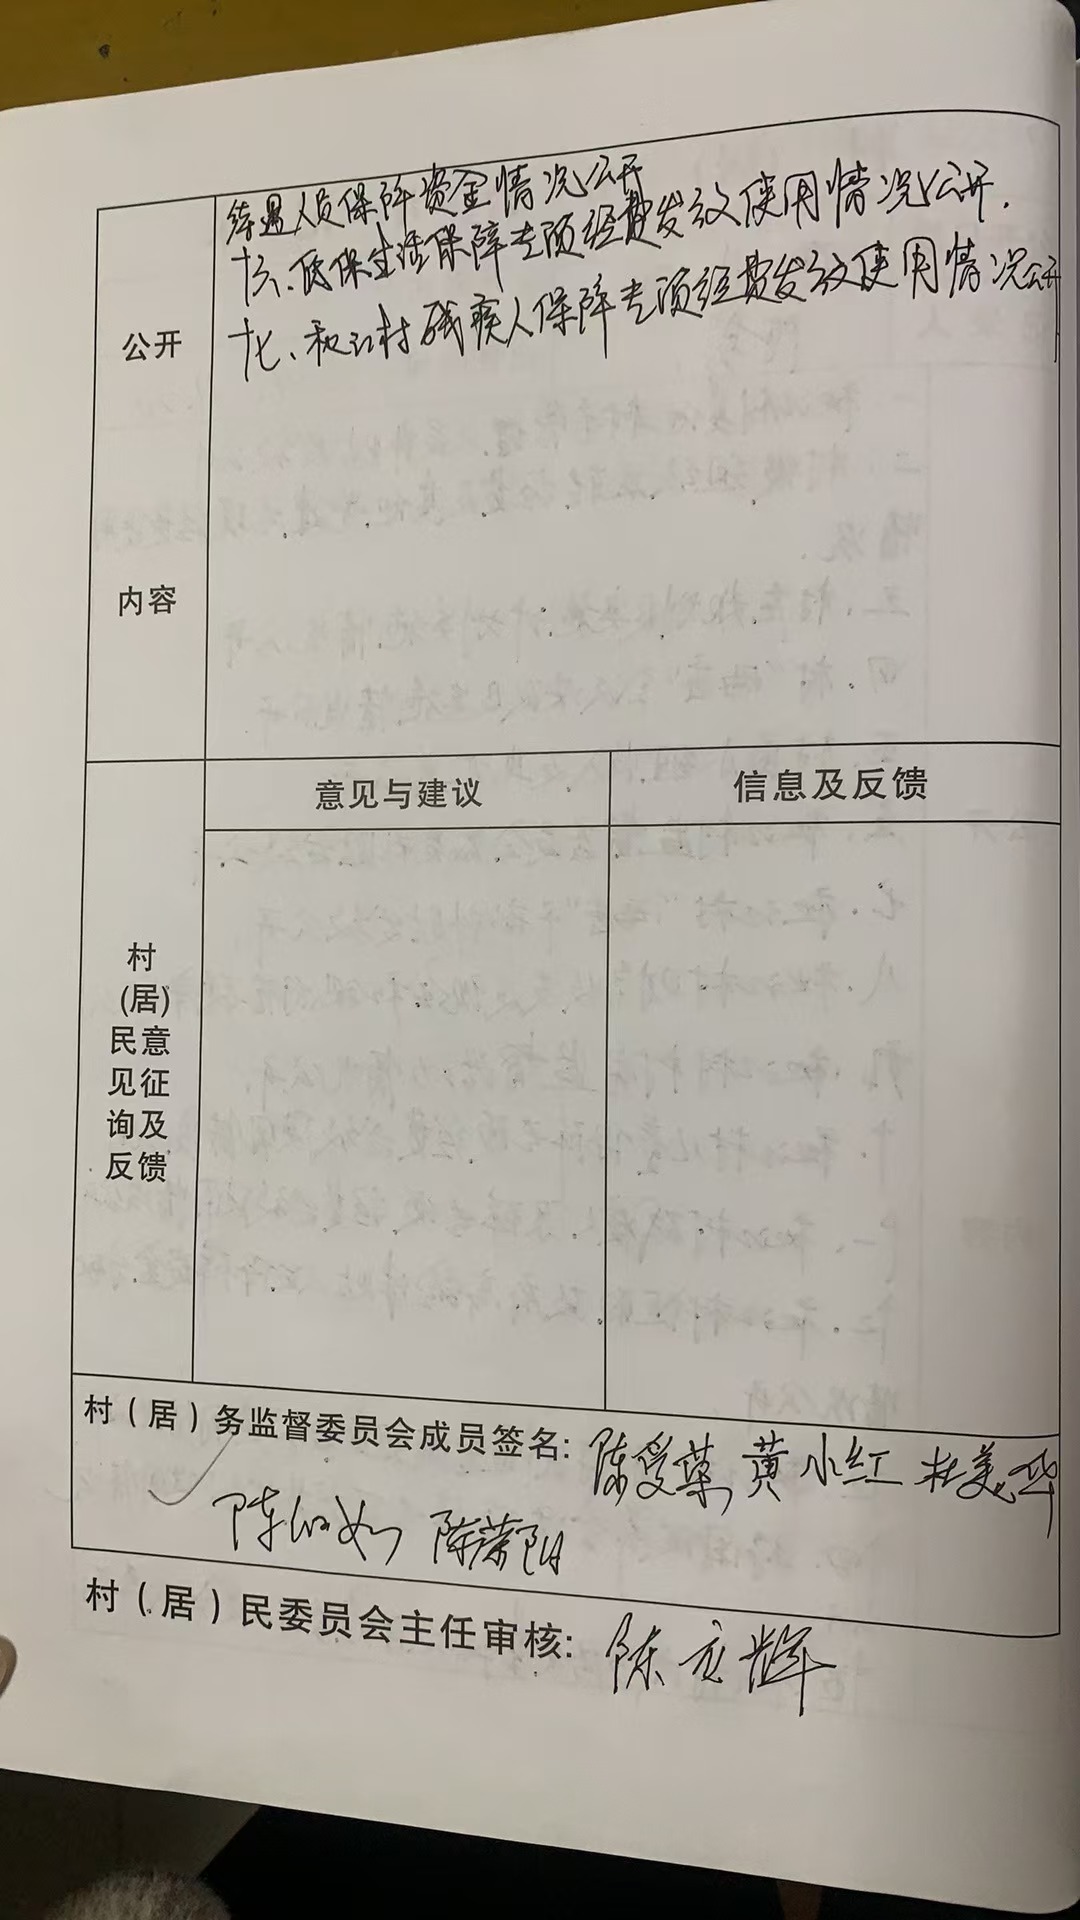 待遇人员保障资金情况公开
十六、低保生活保障专项经费发放使用情况公开.
十七、和江村残疾人保障专项经费发放使用情况公开
公开
内容
意见与建议
信息及反馈
村
(居)
民意
见征
询及
反馈
村（居）务监督委员会成员签名: 陈受葉 黄小红 杜美华
陈 陈荣阳
村（居）民委员会主任审核: 陈 辉